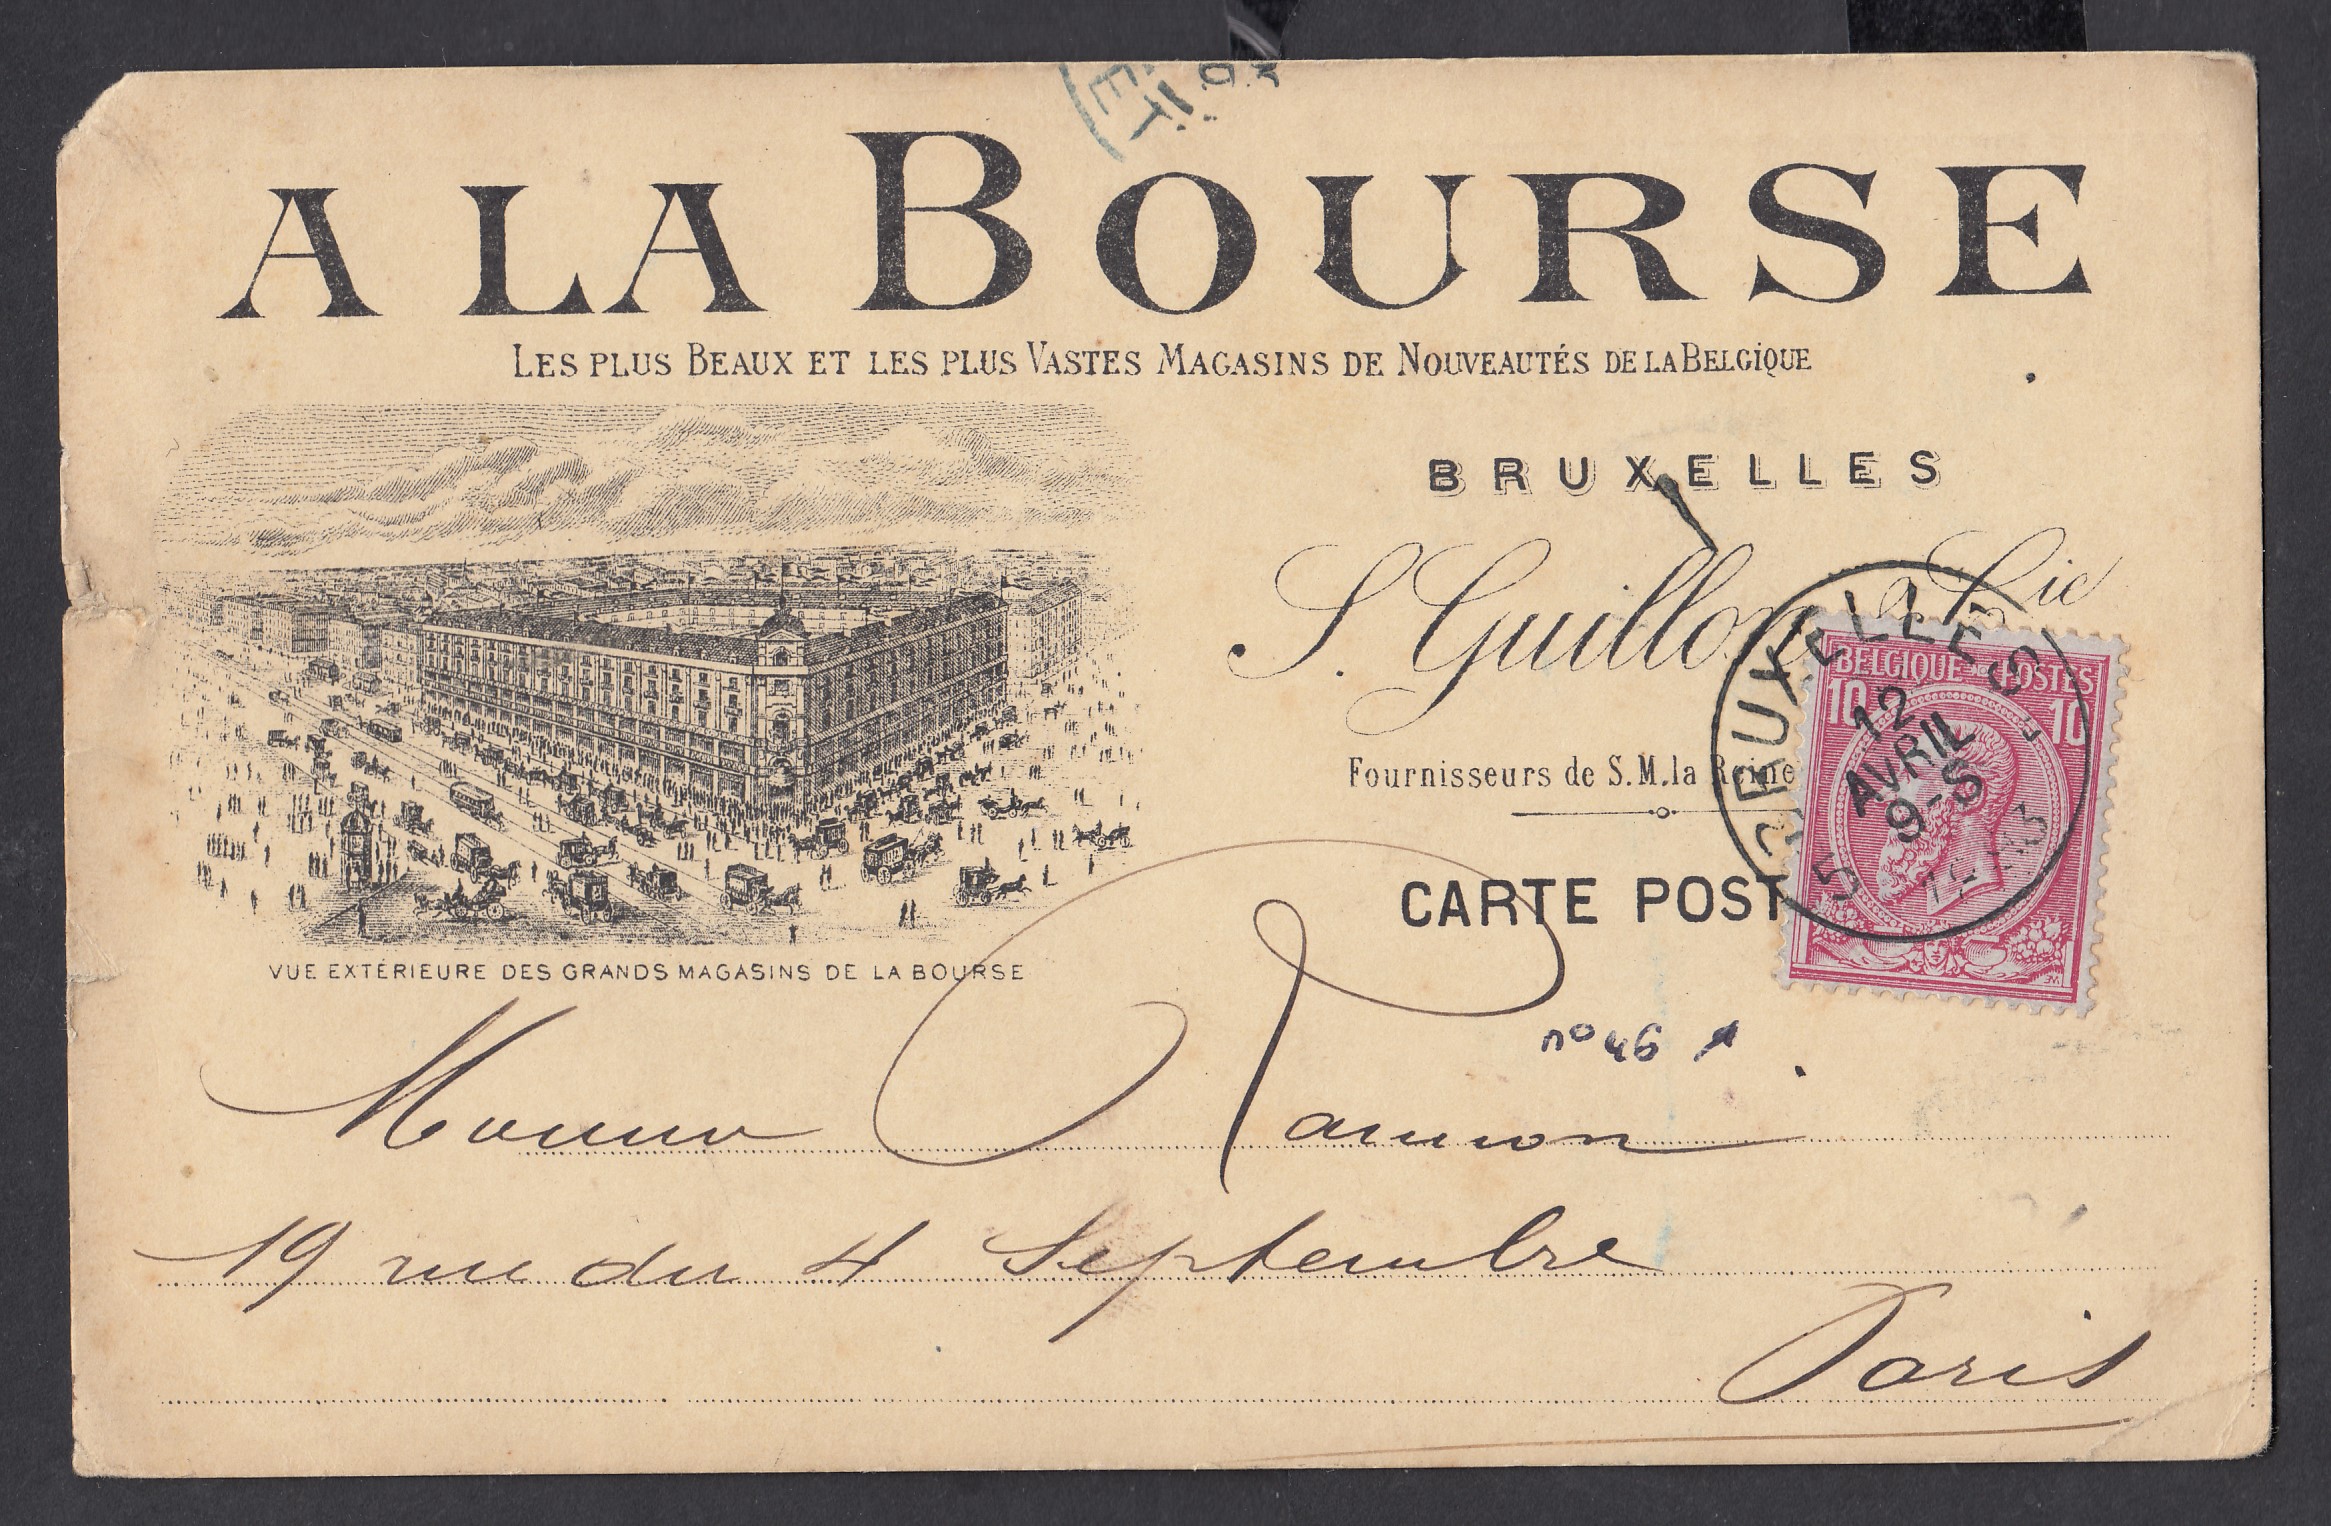 A LA BOURSE
LES PLUS BEAUX ET LES PLUS VASTES MAGASINS DE NOUVEAUTÉS DE LA BELGIQUE
BRUXELLES
S. Guillon & Cie
Fournisseurs de S.M. la Reine
CARTE POST
BELGIQUE POSTES
10 10
BRUXELLES
12
AVRIL
9-S
VUE EXTÉRIEURE DES GRANDS MAGASINS DE LA BOURSE
n° 46
19 rue du 4 Septembre
Paris